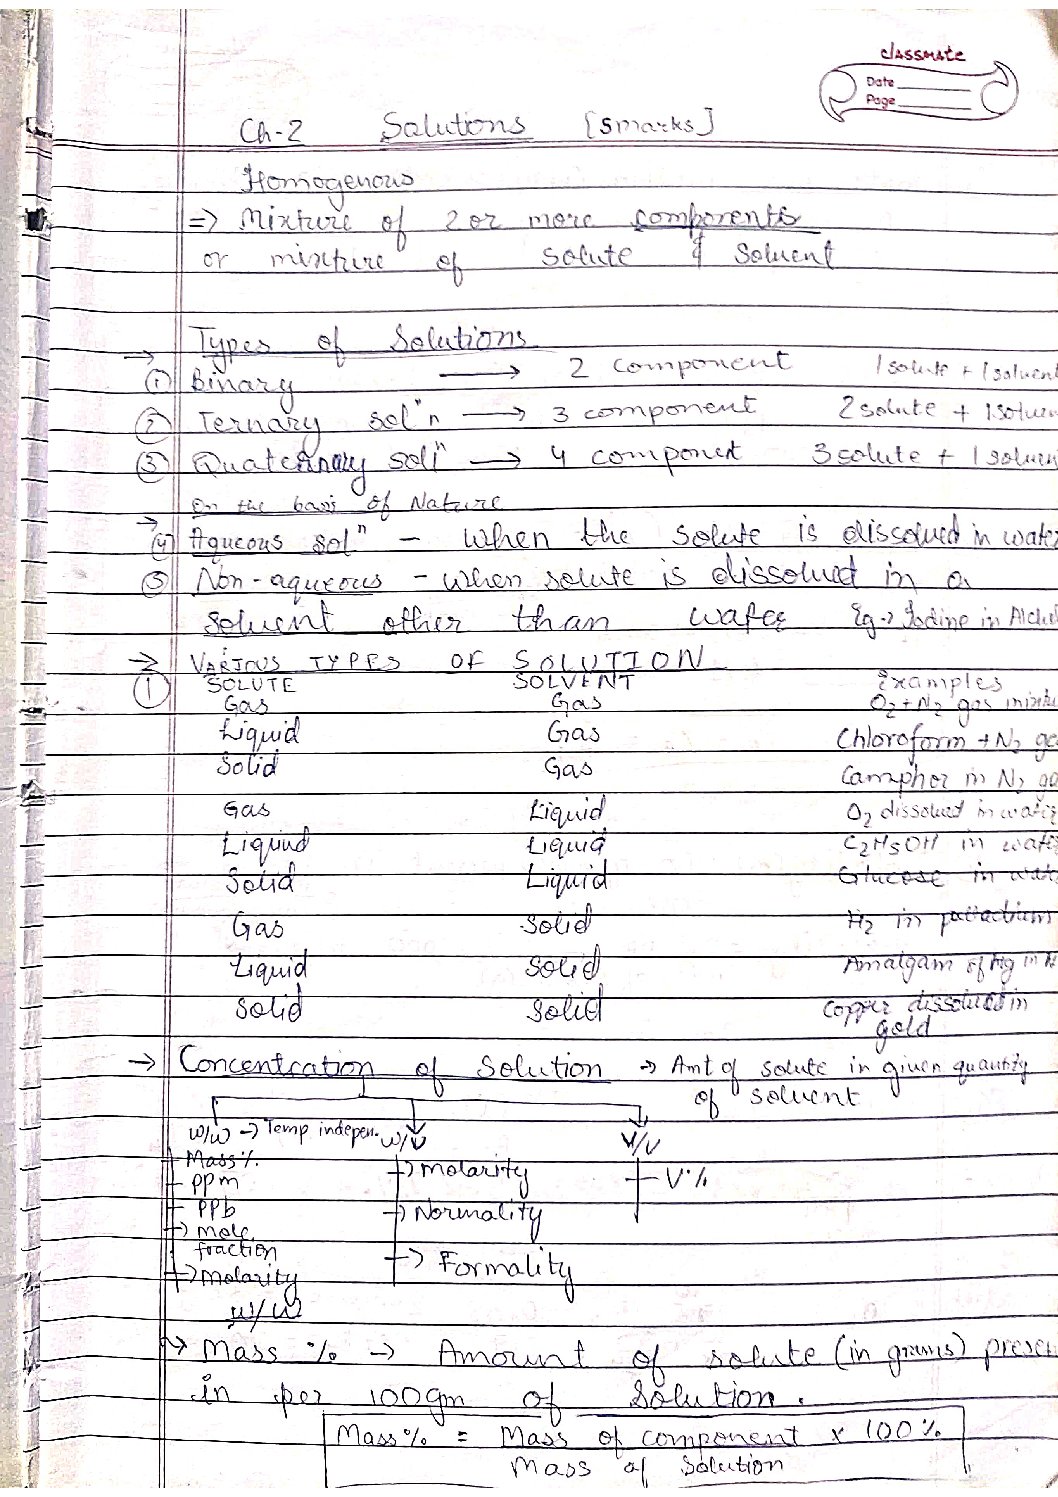 classmate
Date
Page
Ch-2 Solutions [5marks]
Homogenous
=> Mixture of 2 or more components
or mixture of solute & Solvent
→ Types of Solutions
① Binary → 2 component 1 solute + 1 solvent
② Ternary sol"n → 3 component 2 solute + 1 solven
③ Quaternary soli^n → 4 component 3 solute + 1 solven
→ On the basis of Nature
④ Aqueous sol^n - When the solute is dissolved in water
⑤ Non-aqueous - when solute is dissolved in a
solvent other than water Eg→ Iodine in Alcho
→ VARIOUS TYPES OF SOLUTION
① SOLUTE SOLVENT Examples
Gas Gas O2+N2 gas mixtu
Liquid Gas Chloroform + N2 ga
Solid Gas Camphor in N2 ga
Gas Liquid O2 dissolved in water
Liquid Liquid C2H5OH in wate
Solid Liquid Glucose in wate
Gas Solid H2 in palladium
Liquid Solid Amalgam of Hg in N
Solid Solid Copper dissolved in
gold
→ Concentration of Solution → Amt of solute in given quantity
of solvent
w/w → Temp indepen. w/v v/v
Mass% → Molarity V%
ppm
ppb → Normality
→ mole
fraction → Formality
→ Molarity
w/w
→ Mass % → Amount of solute (in grams) presen
in per 100gm of Solution.
Mass% = Mass of component x 100%
Mass of Solution